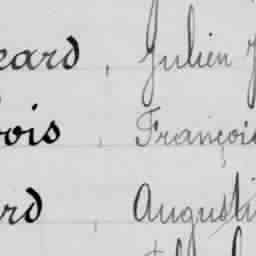 eard, Julien J
bois, François
rd, Augusti